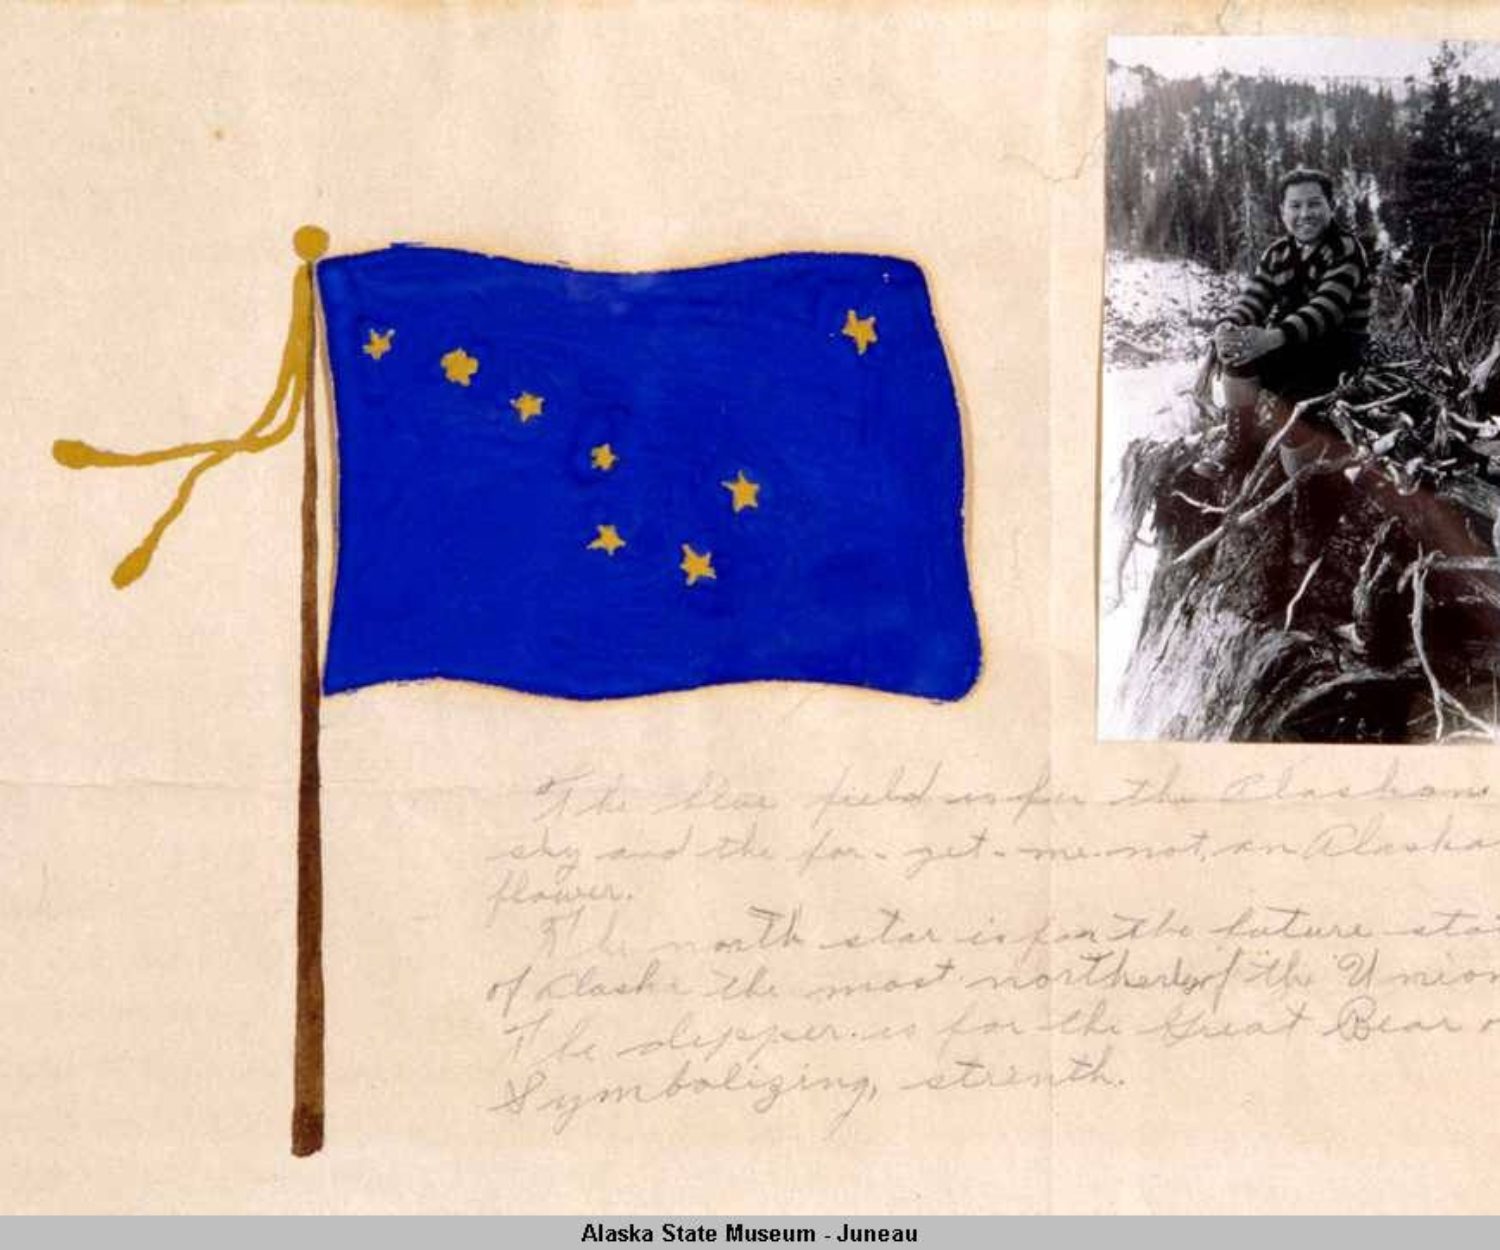 The blue field is for the Alaskan
sky and the for-get-me-not, an Alaska
flower.
The north star is for the future sta
of Alaska the most northerly of the Union
The dipper is for the Great Bear
Symbolizing, strenth.
Alaska State Museum - Juneau